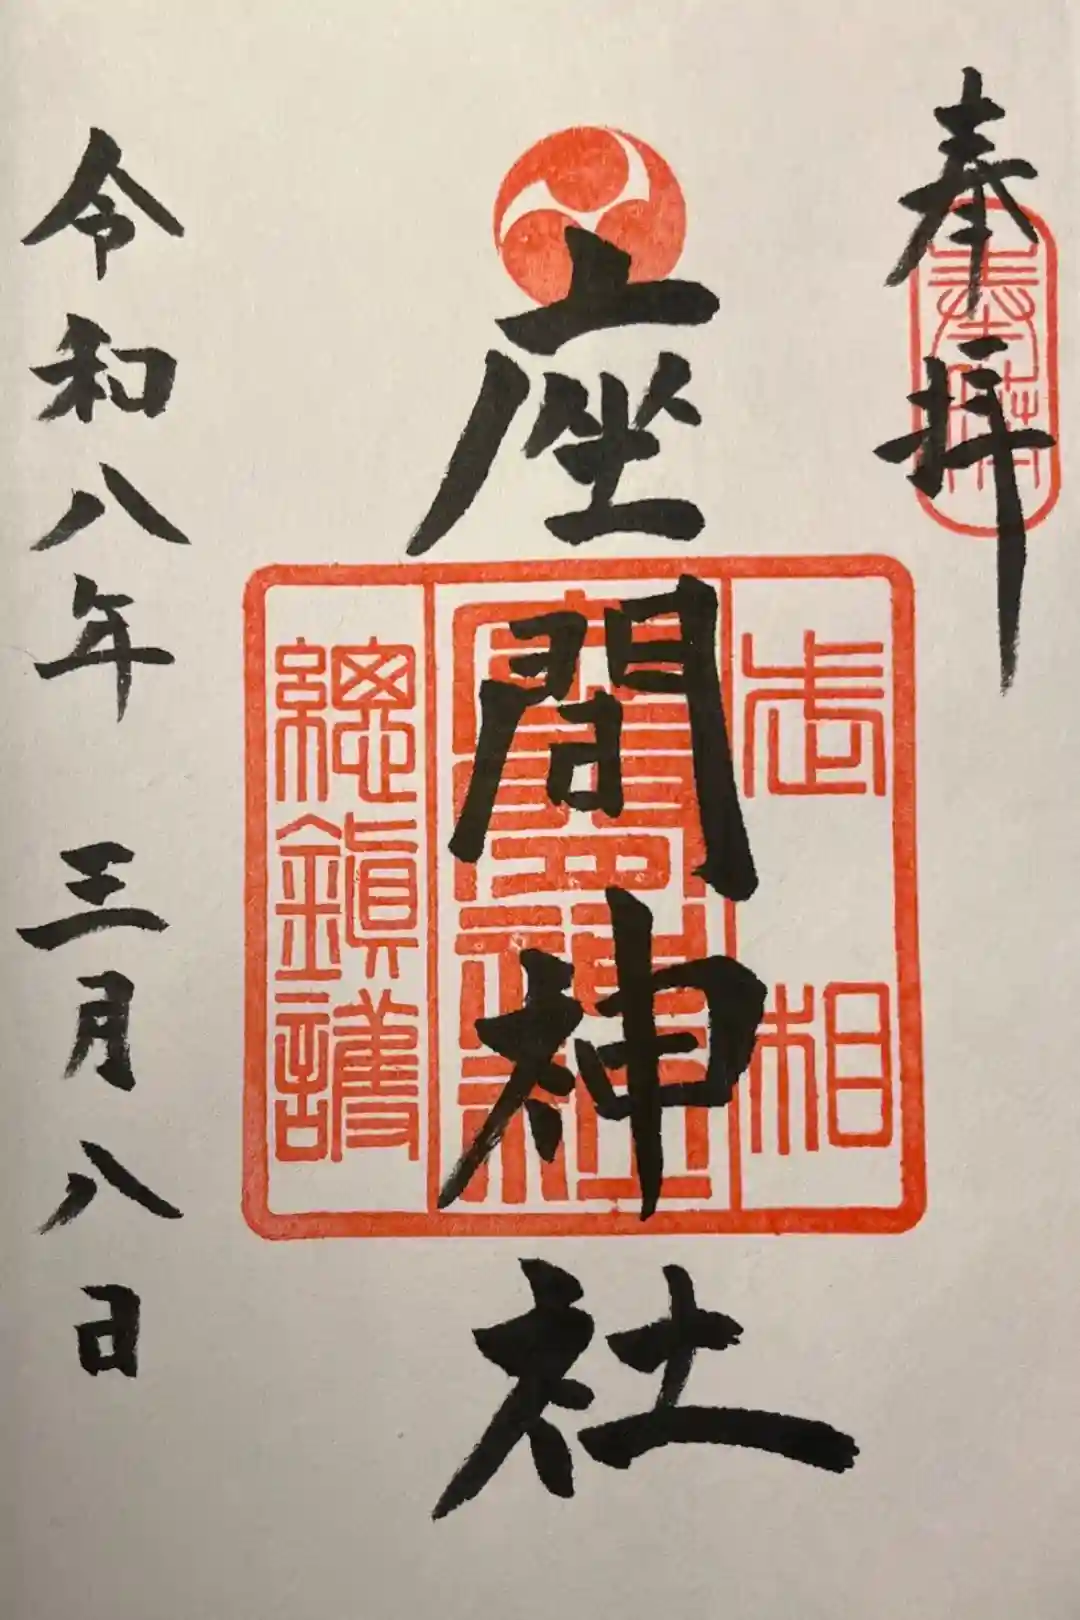 奉拝
奉拝
座間神社
武相
座間神社
總鎮護
令和八年 三月八日